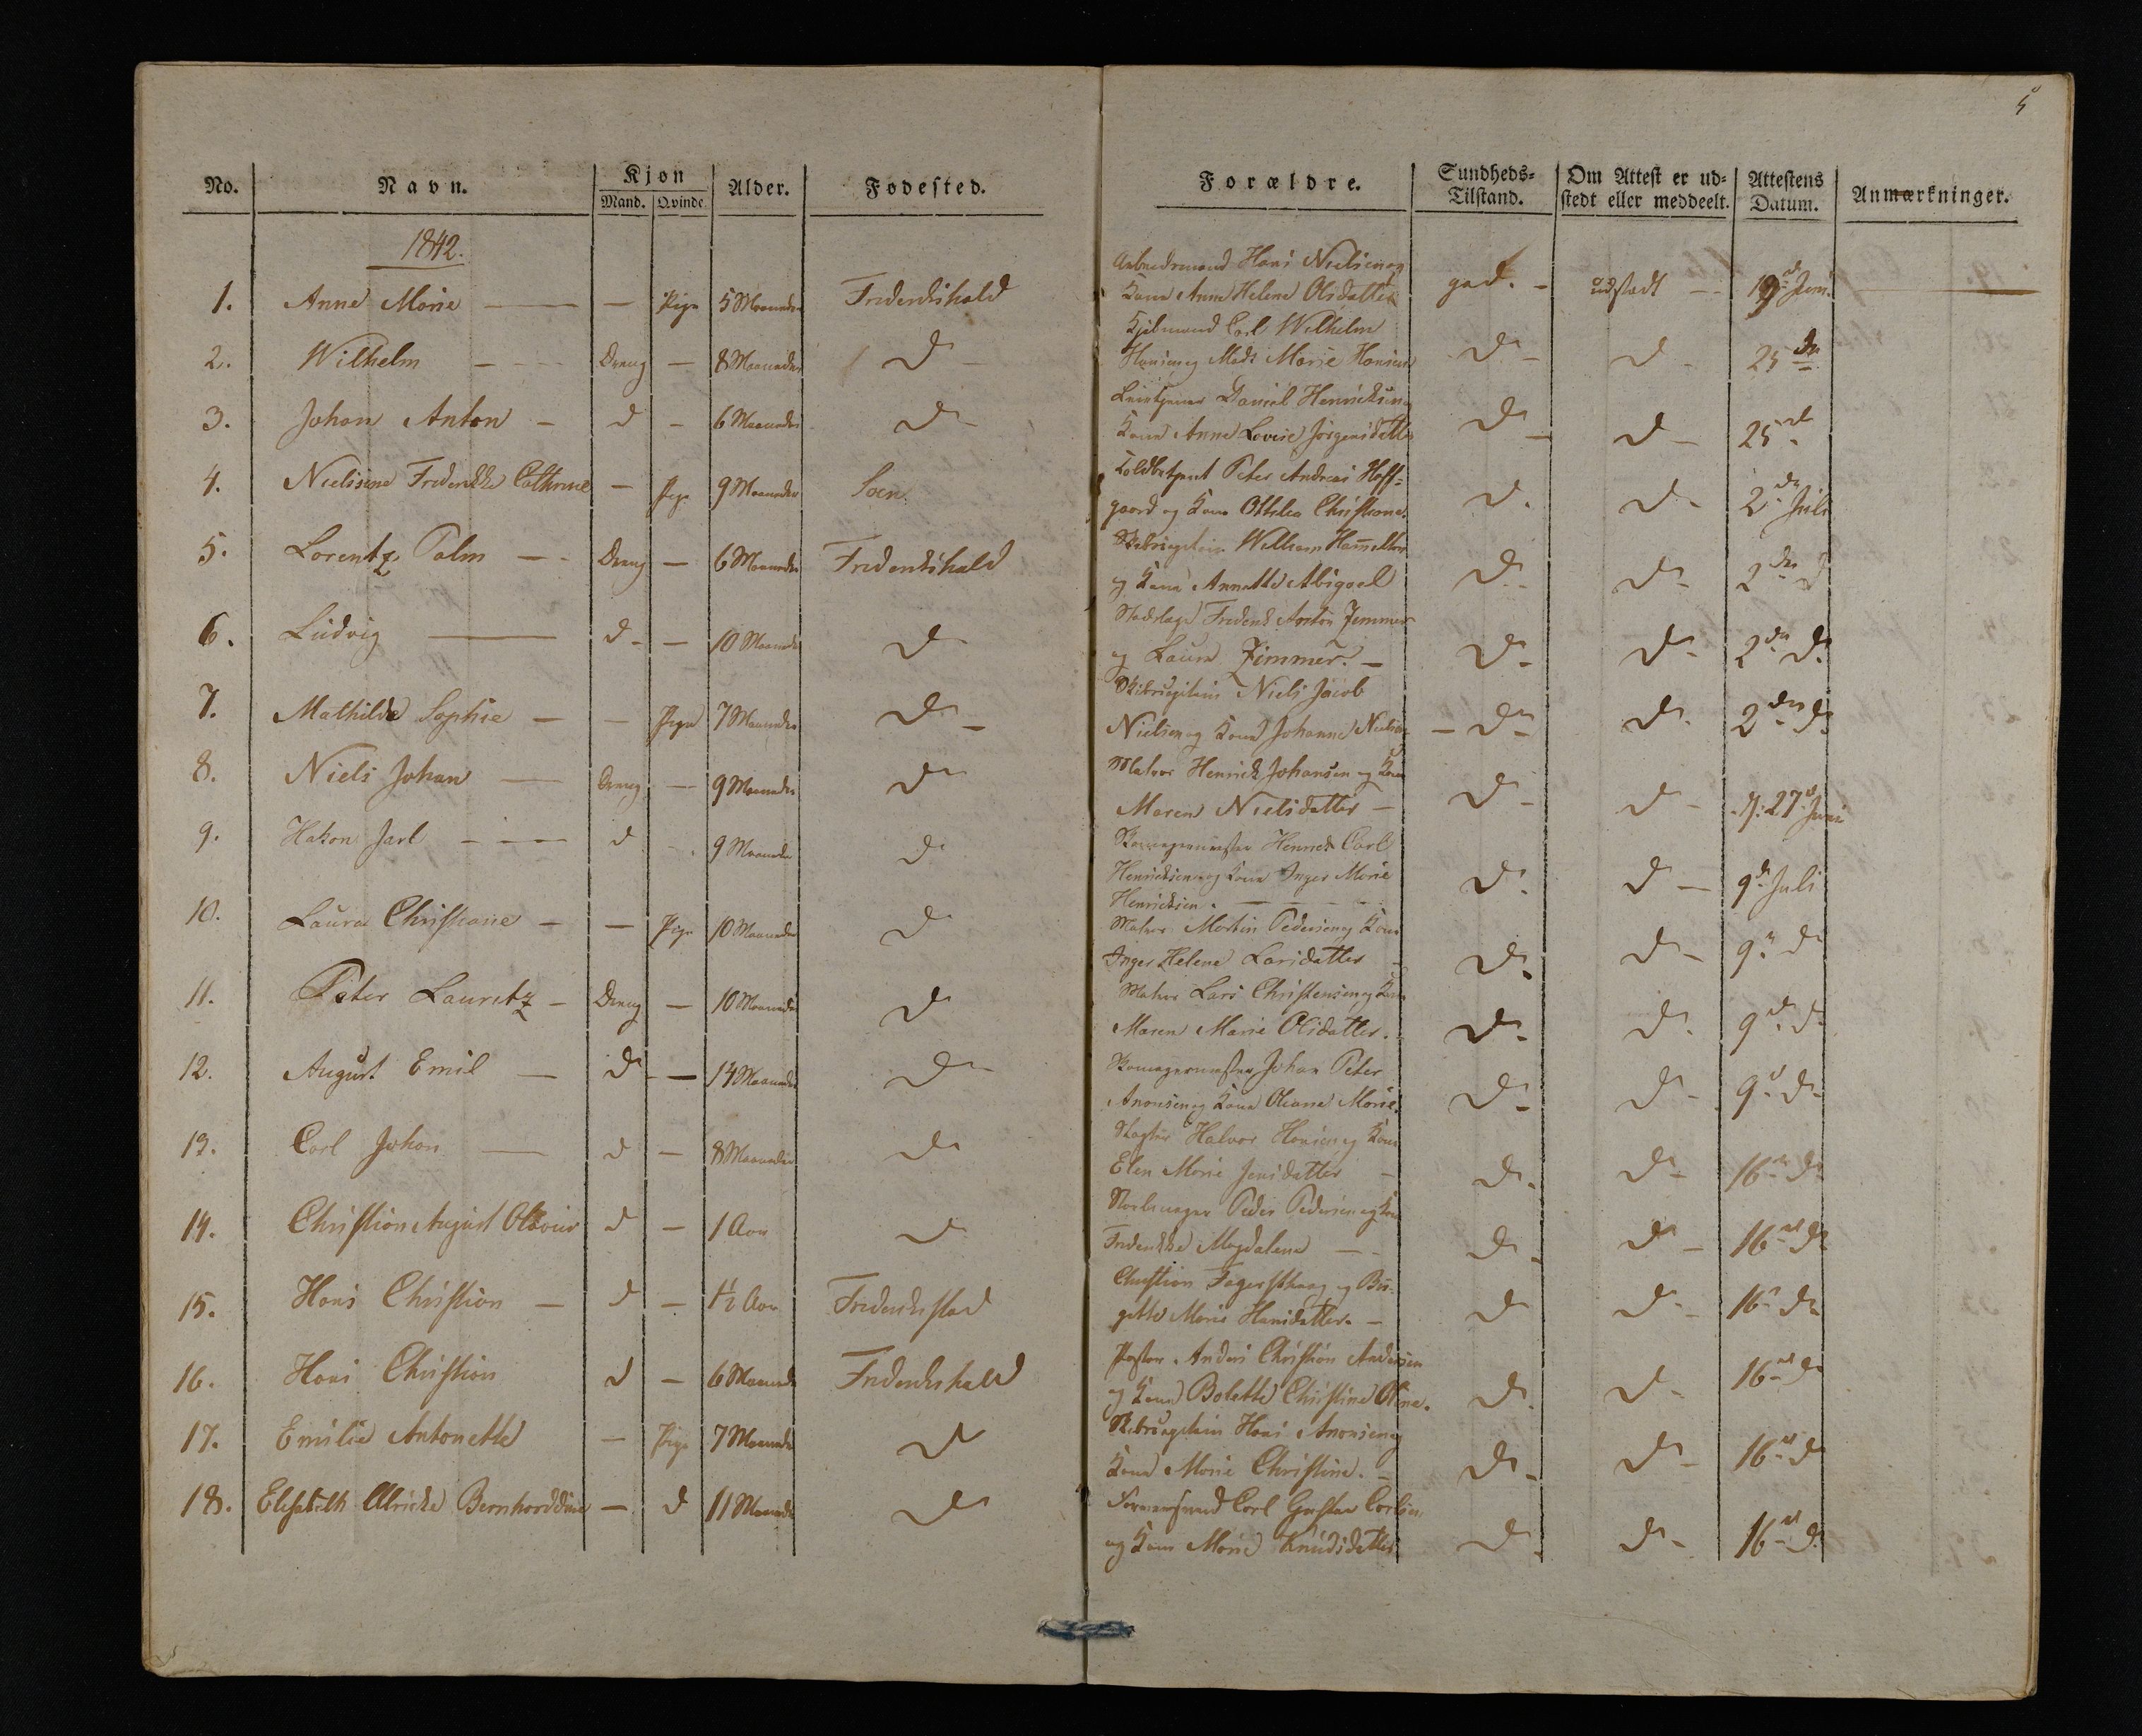 5
No. Navn. Kjøn Alder. Fødested. Forældre. Sundheds= Om Attest er ud= Attestens Anmærkninger.
Mand. Qvinde Tilstand. stedt eller meddeelt. Datum.
1842.
Arbeidsmand Hans Nielsen og
1. Anne Marie — — Pige 5 Maaneder Frederikshald Kone Anne Helene Olsdatter god. — udstædt — 19de Juni.
Kjøbmand Carl Wilhelm
2. Wilhelm — Dreng — 8 Maaneder do — Hansen og Mad: Marie Hansen do — do — 25de
Daniel Henricksen og
3. Johan Anton — do — 6 Maaneder do — Kone Anne Lovise Jørgensdatter do — do — 25de
Toldbetjent Peter Andreas Hoff=
4. Nielsine Frederikke Cathrine — Pige 9 Maaneder gaard og Kone Othilia Christiane. do. do — 2den Juli
Skibscapitain William Hamelton
5. Lorentz Palm — Dreng — 6 Maaneder Frederikshald og Kone Annette Abigael do — do — 2den do
Frederik Anton Zimmer
6. Ludvig — do — — 10 Maaneder do og Laura Zimmer. — do — do — 2den do.
Skibscapitain Niels Jacob
7. Mathilde Sophie — — Pige 7 Maaneder do — Nielsen og Kone Johanne Nielsen — do — do. 2den do
Matros Henrick Johansen og Kone
8. Niels Johan — Dreng — 9 Maaneder do Maren Nielsdatter — do — do — 27de Juni
Skomagermester Henrick Carl
9. Hakon Jarl — do — 9 Maaneder do Henricksen og Kone Inger Marie do. do — 9de Juli
Henricksen. —
10. Laura Christiane — — Pige 10 Maaneder do Matros Martin Pedersen og Kone
Inger Helene Larsdatter do — do — 9de do
Matros Lars Christensen og Kone
11. Peter Lauritz — Dreng — 10 Maaneder do Maren Marie Olsdatter. do — do. 9de do
Skomagermester Johan Peter
12. August Emil — do — — 14 Maaneder do — Anonsen og Kone Oleane Marie. do — do — 9de do
Slagter Halvor Hansen og Kone
13. Carl Johan — do — 8 Maaneder do Elen Marie Jensdatter — do. do — 16de do
Peder Pedersen og Kone
14. Christian August Olavus do — 1 Aar do Frederikke Magdalene — do — do — 16de do
Christian Fagerskaag og Bir=
15. Hans Christian — do — 1½ Aar Frederikstad gitte Marie Hansdatter. — do do — 16de do
Anders Christian Andersen
16. Hans Christian do — 6 Maaneder Frederikshald og Kone Bolette Christine Oline. do. do — 16de do
Skibscapitain Hans Anonsen og
17. Emilie Antonette — Pige 7 Maaneder do Kone Marie Christine. — do — do — 16de do
Carl Gustav Carlsen
18. Elisabeth Ulricke Bernharddine — do 11 Maaneder do og Kone Marie Knudsdatter do — do — 16de do.